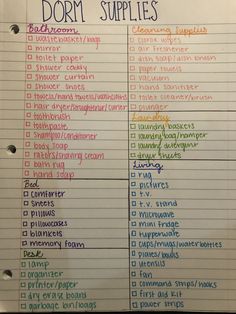 DORM SUPPLIES
Bathroom
wastebasket/bags
mirror
toilet paper
shower caddy
shower curtain
shower shoes
towels/hand towels/washcloths
hair dryer/straightener/curler
toothbrush
toothpaste
shampoo/conditioner
body soap
razors/shaving cream
bath rug
hand soap
Bed
comforter
sheets
pillows
pillowcases
blankets
memory foam
Desk
lamp
organizer
printer/paper
dry erase board
garbage bin/bags
Cleaning Supplies
clorox wipes
air freshener
dish soap/dish brush
paper towels
vacuum
hand sanitizer
toilet cleaner/brush
plunger
Laundry
laundry baskets
laundry bag/hamper
laundry detergent
dryer sheets
Living
rug
pictures
t.v.
t.v. stand
microwave
mini fridge
tupperware
cups/mugs/water bottles
plates/bowls
utensils
fan
command strips/hooks
first aid kit
power strips